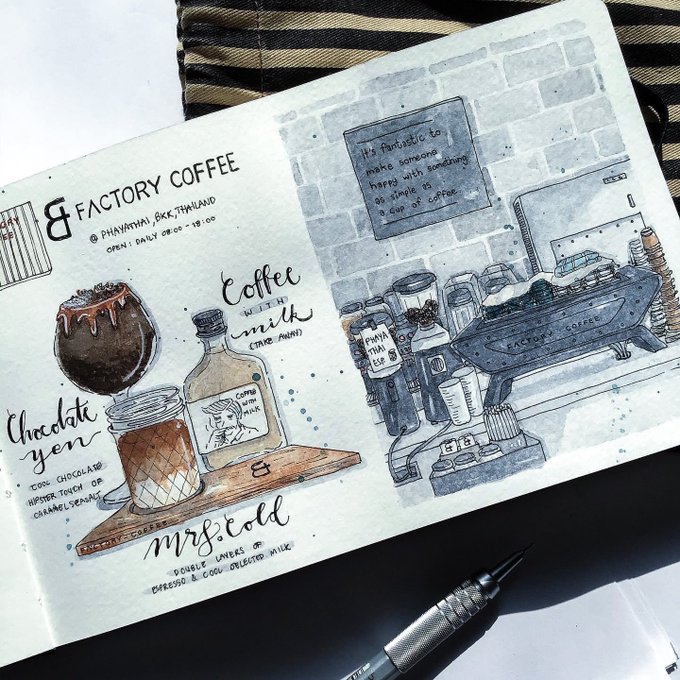 FACTORY COFFEE
@ PHAYATHAI, BKK, THAILAND
OPEN : DAILY 08:00 - 18:00
Coffee
WITH
milk
(TAKE AWAY)
COFFEE
WITH
MILK
Chocolate
yen
COOL CHOCOLATE
HIPSTER TOUCH OF
CARAMEL SEASALT
FACTORY COFFEE
mrs. cold
DOUBLE LAYERS OF
ESPRESSO & COOL SELECTED MILK
it's fantastic to
make someone
happy with something
as simple as
a cup of coffee
PHAYA
THAI
ESP
FACTORY COFFEE